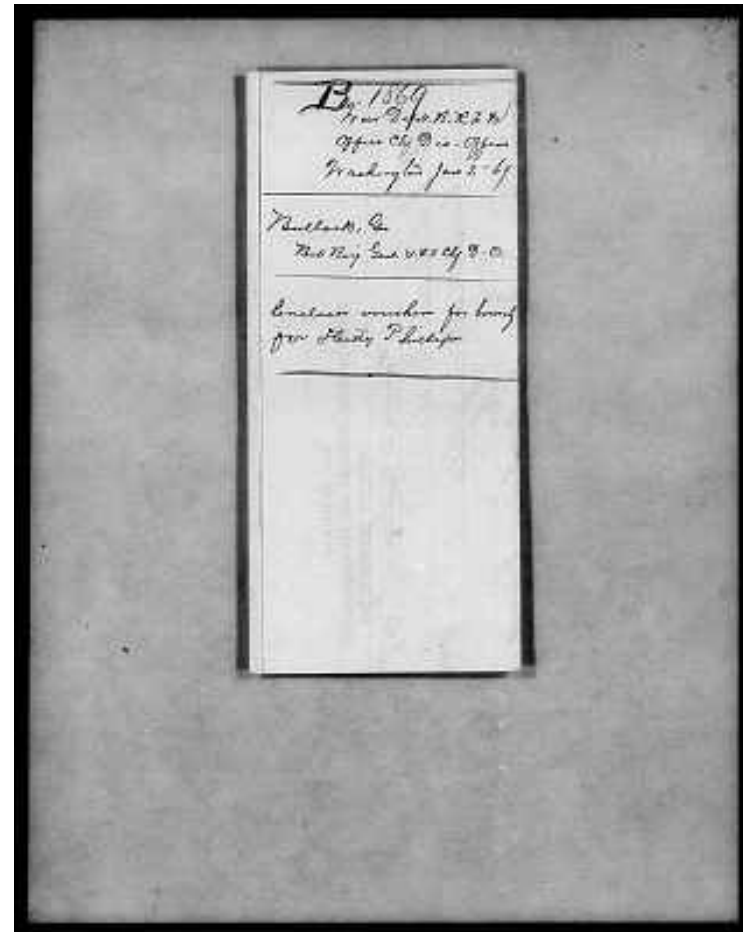 B. 1869
War Dept. B. R. F. &
Office Chf Dis. Officer
Washington Jan 2 - 69
Bullock, Geo
Bvt Brig Genl & Chf D. O.
Encloses voucher for bounty
for Phillips